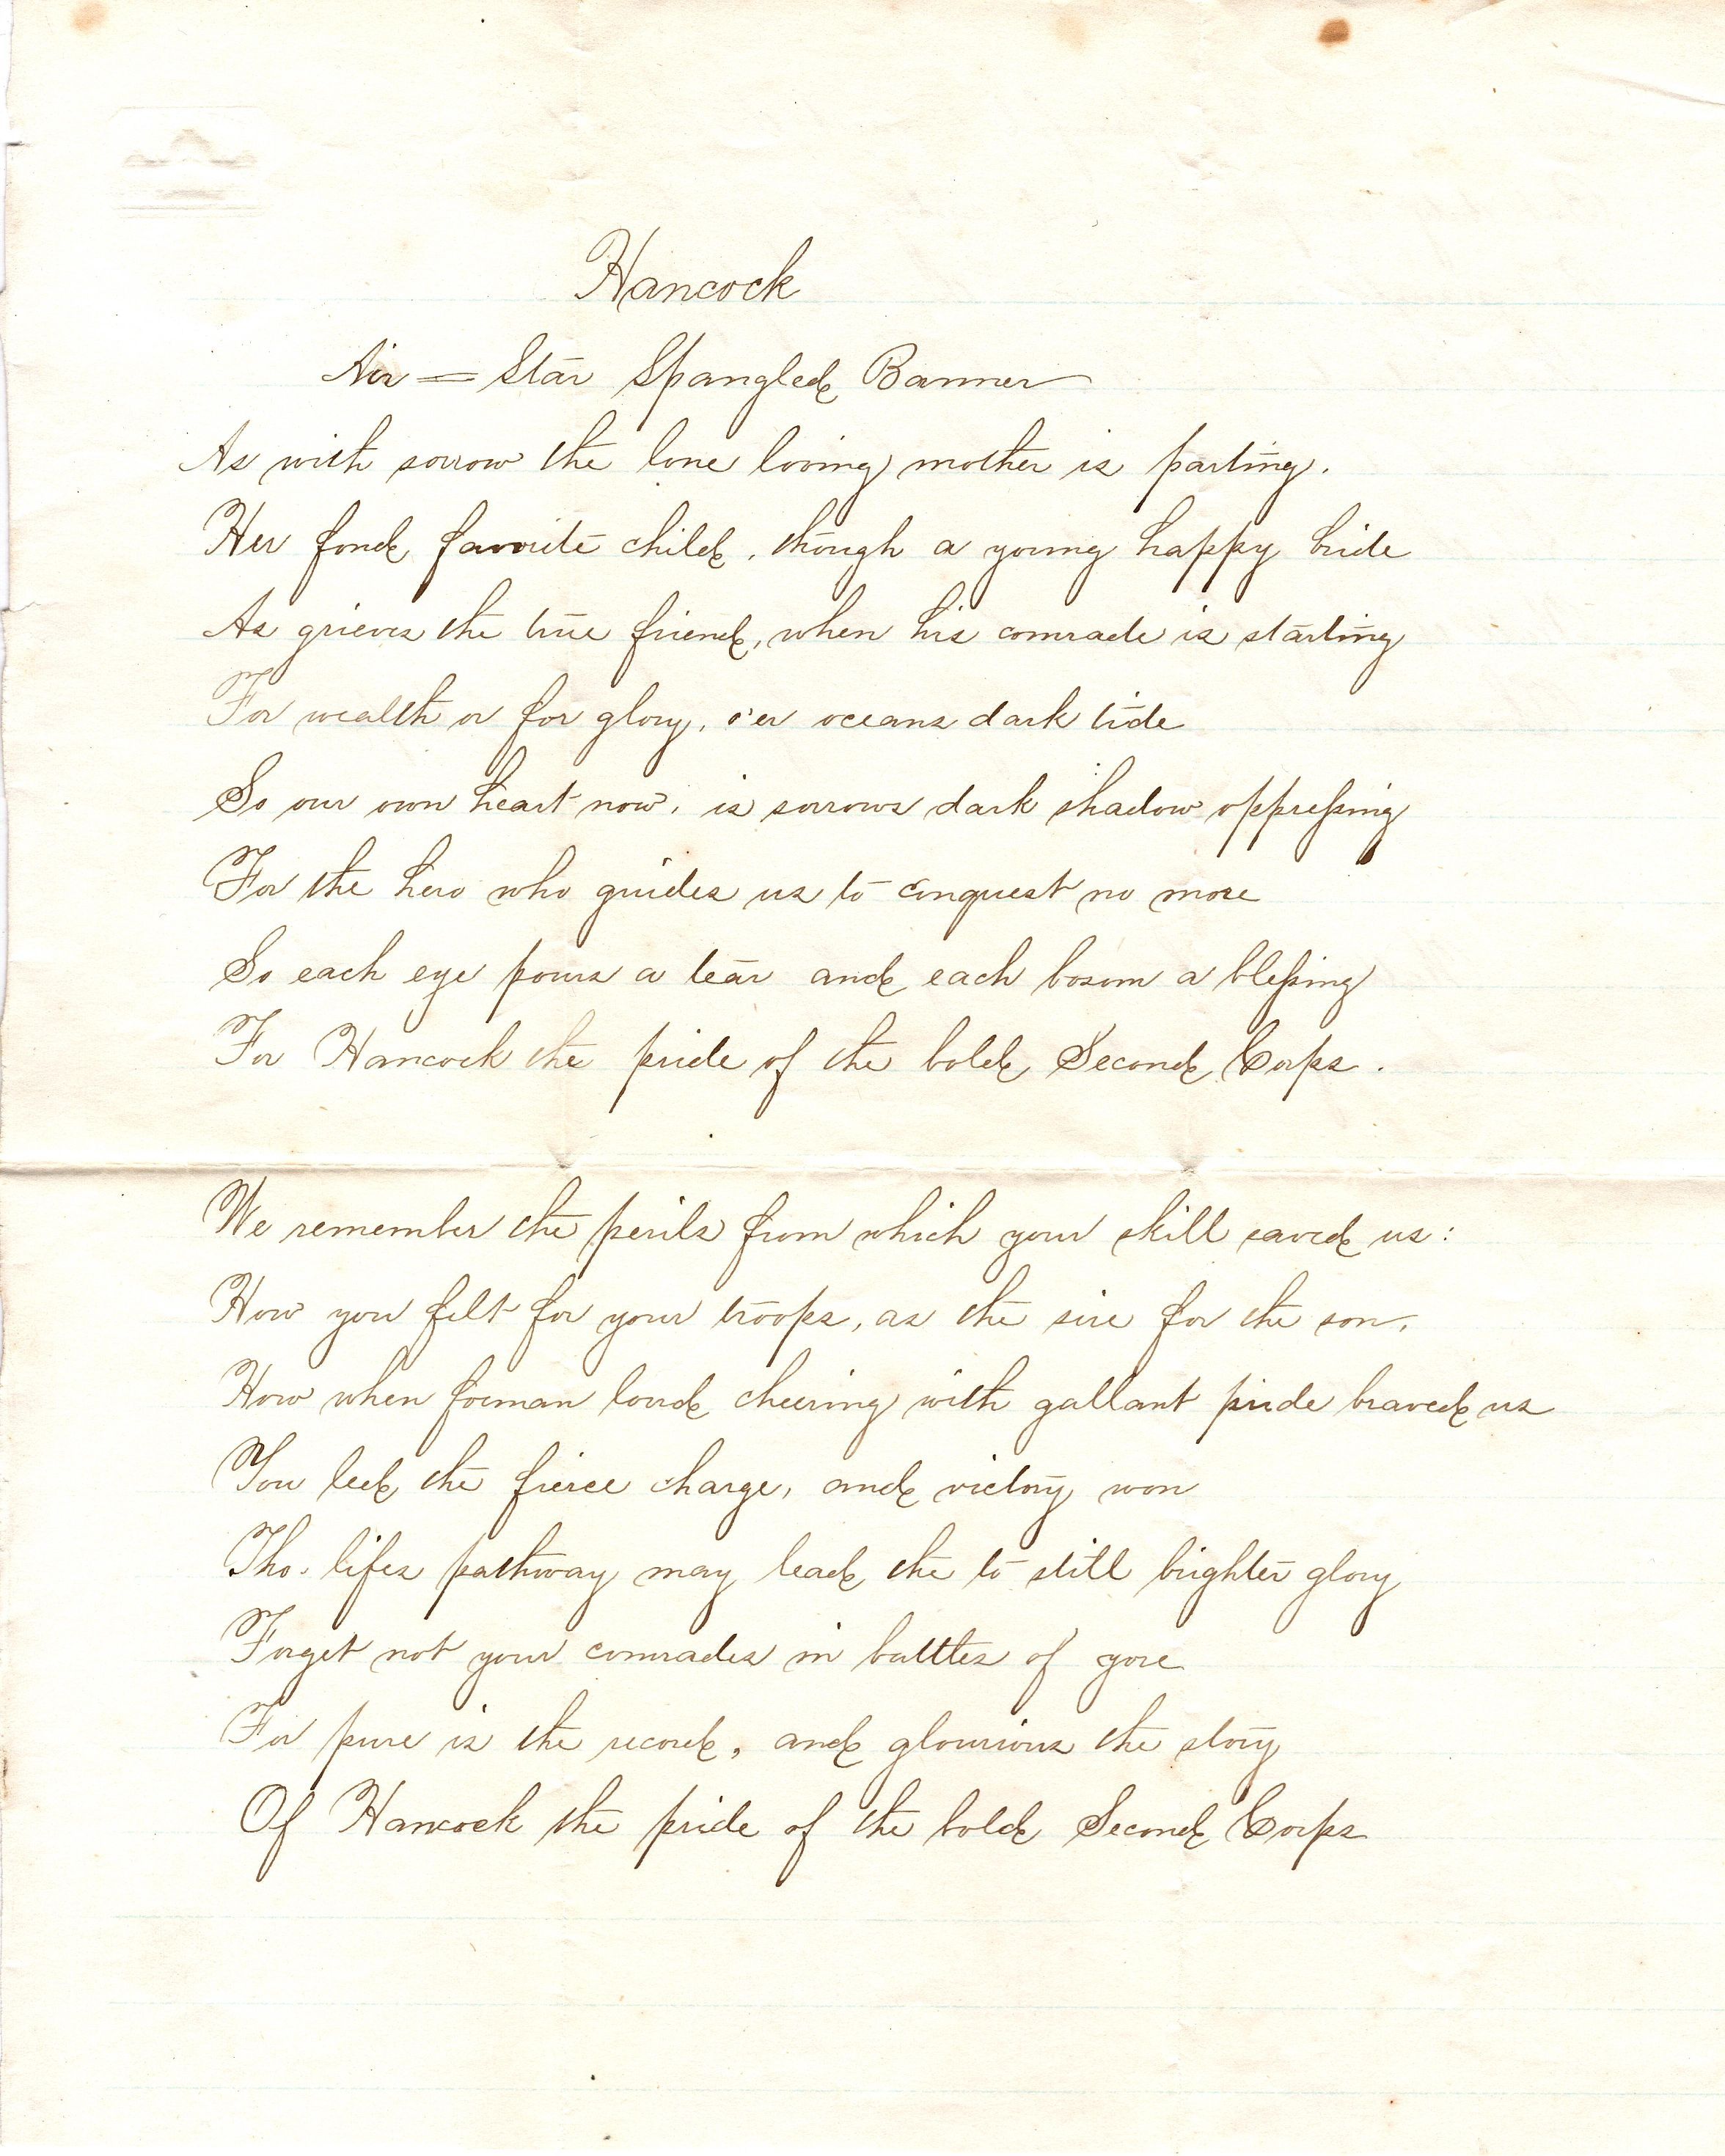 Hancock
Air = Star Spangled Banner
As with sorrow the lone loving mother is parting.
Her fond favorite child, though a young happy bride
As grieves the true friend, when his comrade is starting
For wealth or for glory, o'er oceans dark tide
So our own heart now, is sorrows dark shadow oppressing
For the hero who guides us to conquest no more
So each eye pours a tear and each bosom a blessing
For Hancock the pride of the bold Second Corps.
We remember the perils from which your skill saved us:
How you felt for your troops, as the sire for the son,
How when foeman loud cheering with gallant pride braved us
You led the fierce charge, and victory won
Tho. lifes pathway may lead the to still brighter glory
Forget not your comrades in battles of yore
For pure is the record, and glourious the story
Of Hancock the pride of the bold Second Corps